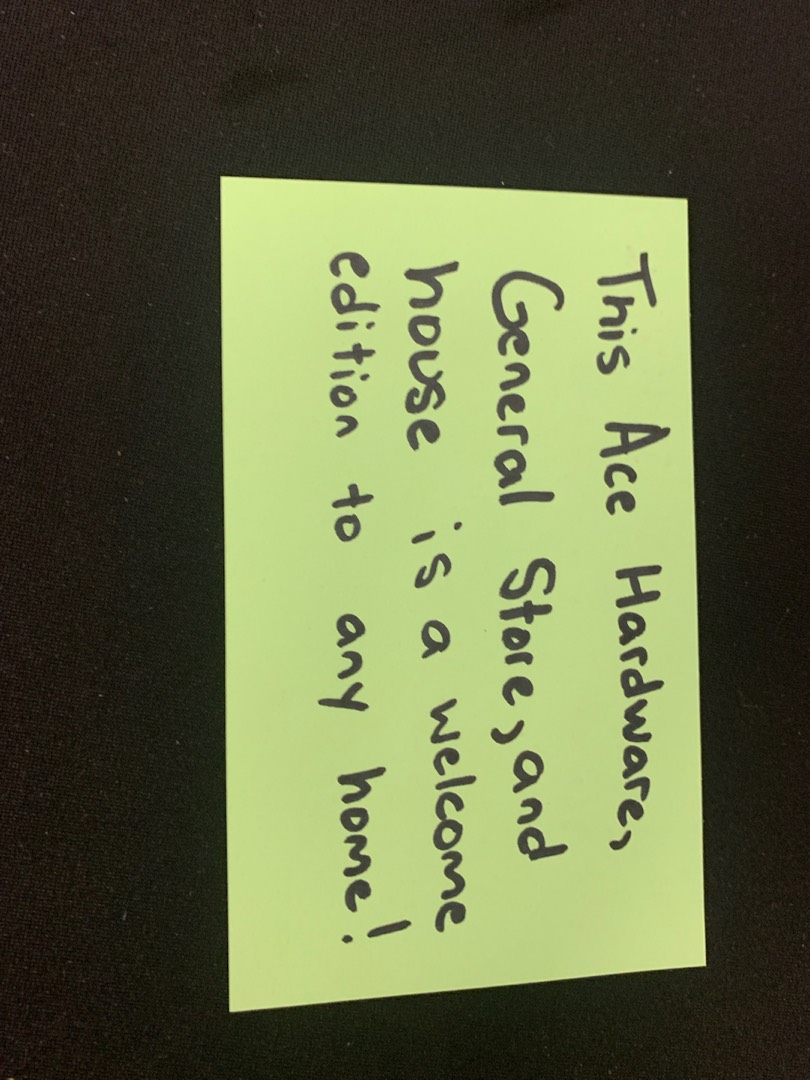 This Ace Hardware,
General Store, and
house is a welcome
edition to any home!